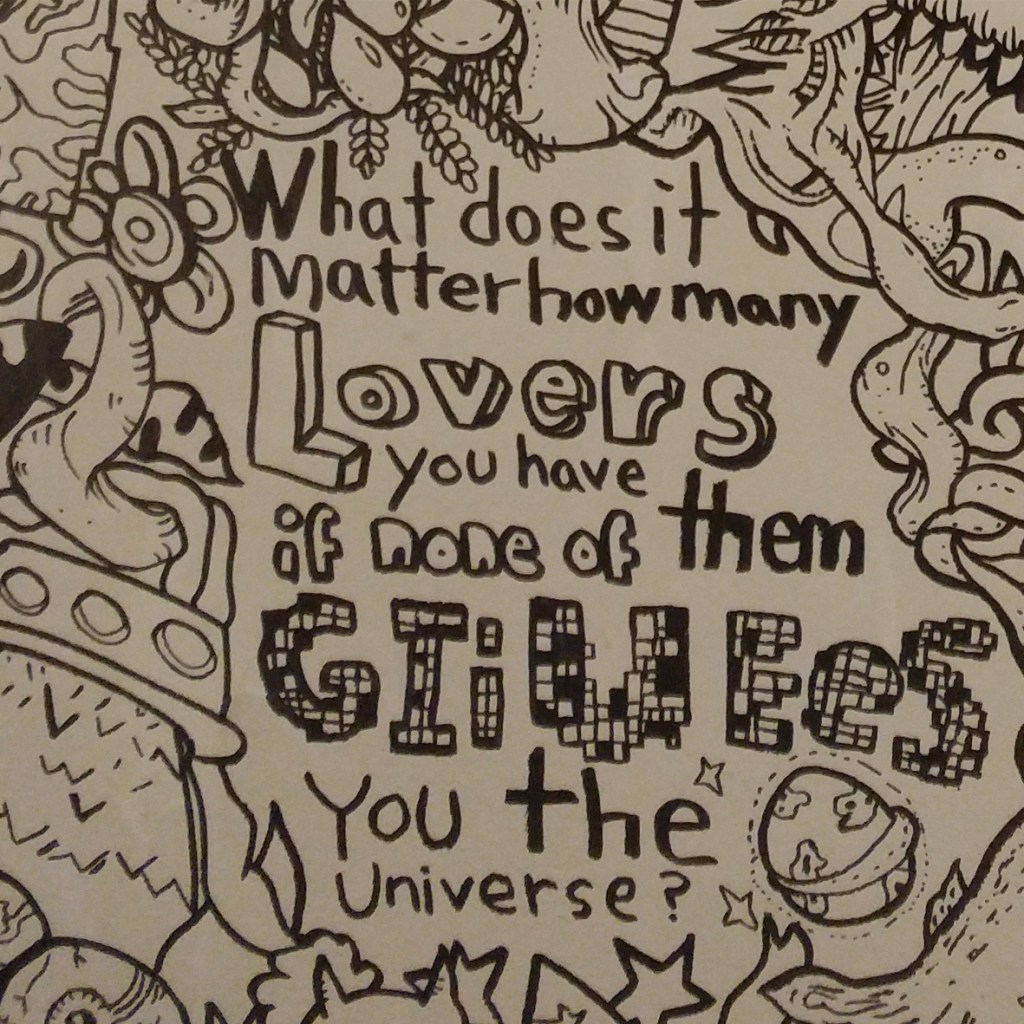 What does it
Matter how many
Lovers
you have
if none of them
GIiVEeS
You the
Universe?